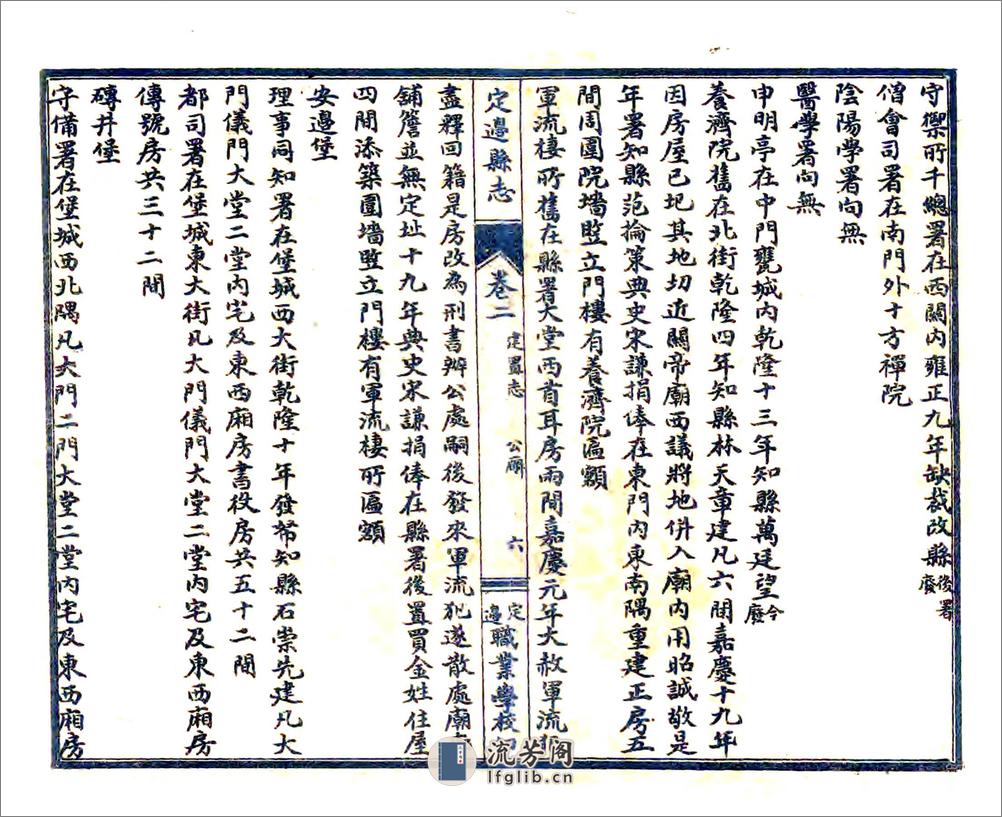 守禦所千總署在西關內雍正九年缺裁改縣後署廢
僧會司署在南門外十方禪院
陰陽學署向無
醫學署向無
申明亭在中門甕城內乾隆十三年知縣萬廷望今廢
養濟院舊在北街乾隆四年知縣林天章建凡六間嘉慶十九年
因房屋已圮其地切近關帝廟西議將地併入廟內用昭誠敬是
年署知縣范掄策典史宋謙捐俸在東門內東南隅重建正房五
間周圍院墻暨立門樓有養濟院匾額
軍流棲所舊在縣署大堂西首耳房兩間嘉慶元年大赦軍流
定邊縣志 卷二 建置志 公廨 六 定邊職業學校印
盡釋回籍是房改為刑書辦公處嗣後發來軍流犯遂散處廟
舖簷並無定址十九年典史宋謙捐俸在縣署後置買金姓住屋
四間添築圍墻暨立門樓有軍流棲所匾額
安邊堡
理事同知署在堡城西大街乾隆十年發帑知縣石崇先建凡大
門儀門大堂二堂內宅及東西廂房書役房共五十二間
都司署在堡城東大街凡大門儀門大堂二堂內宅及東西廂房
傳號房共三十二間
磚井堡
守備署在堡城西北隅凡大門二門大堂二堂內宅及東西廂房
流芳閣
lfglib.cn